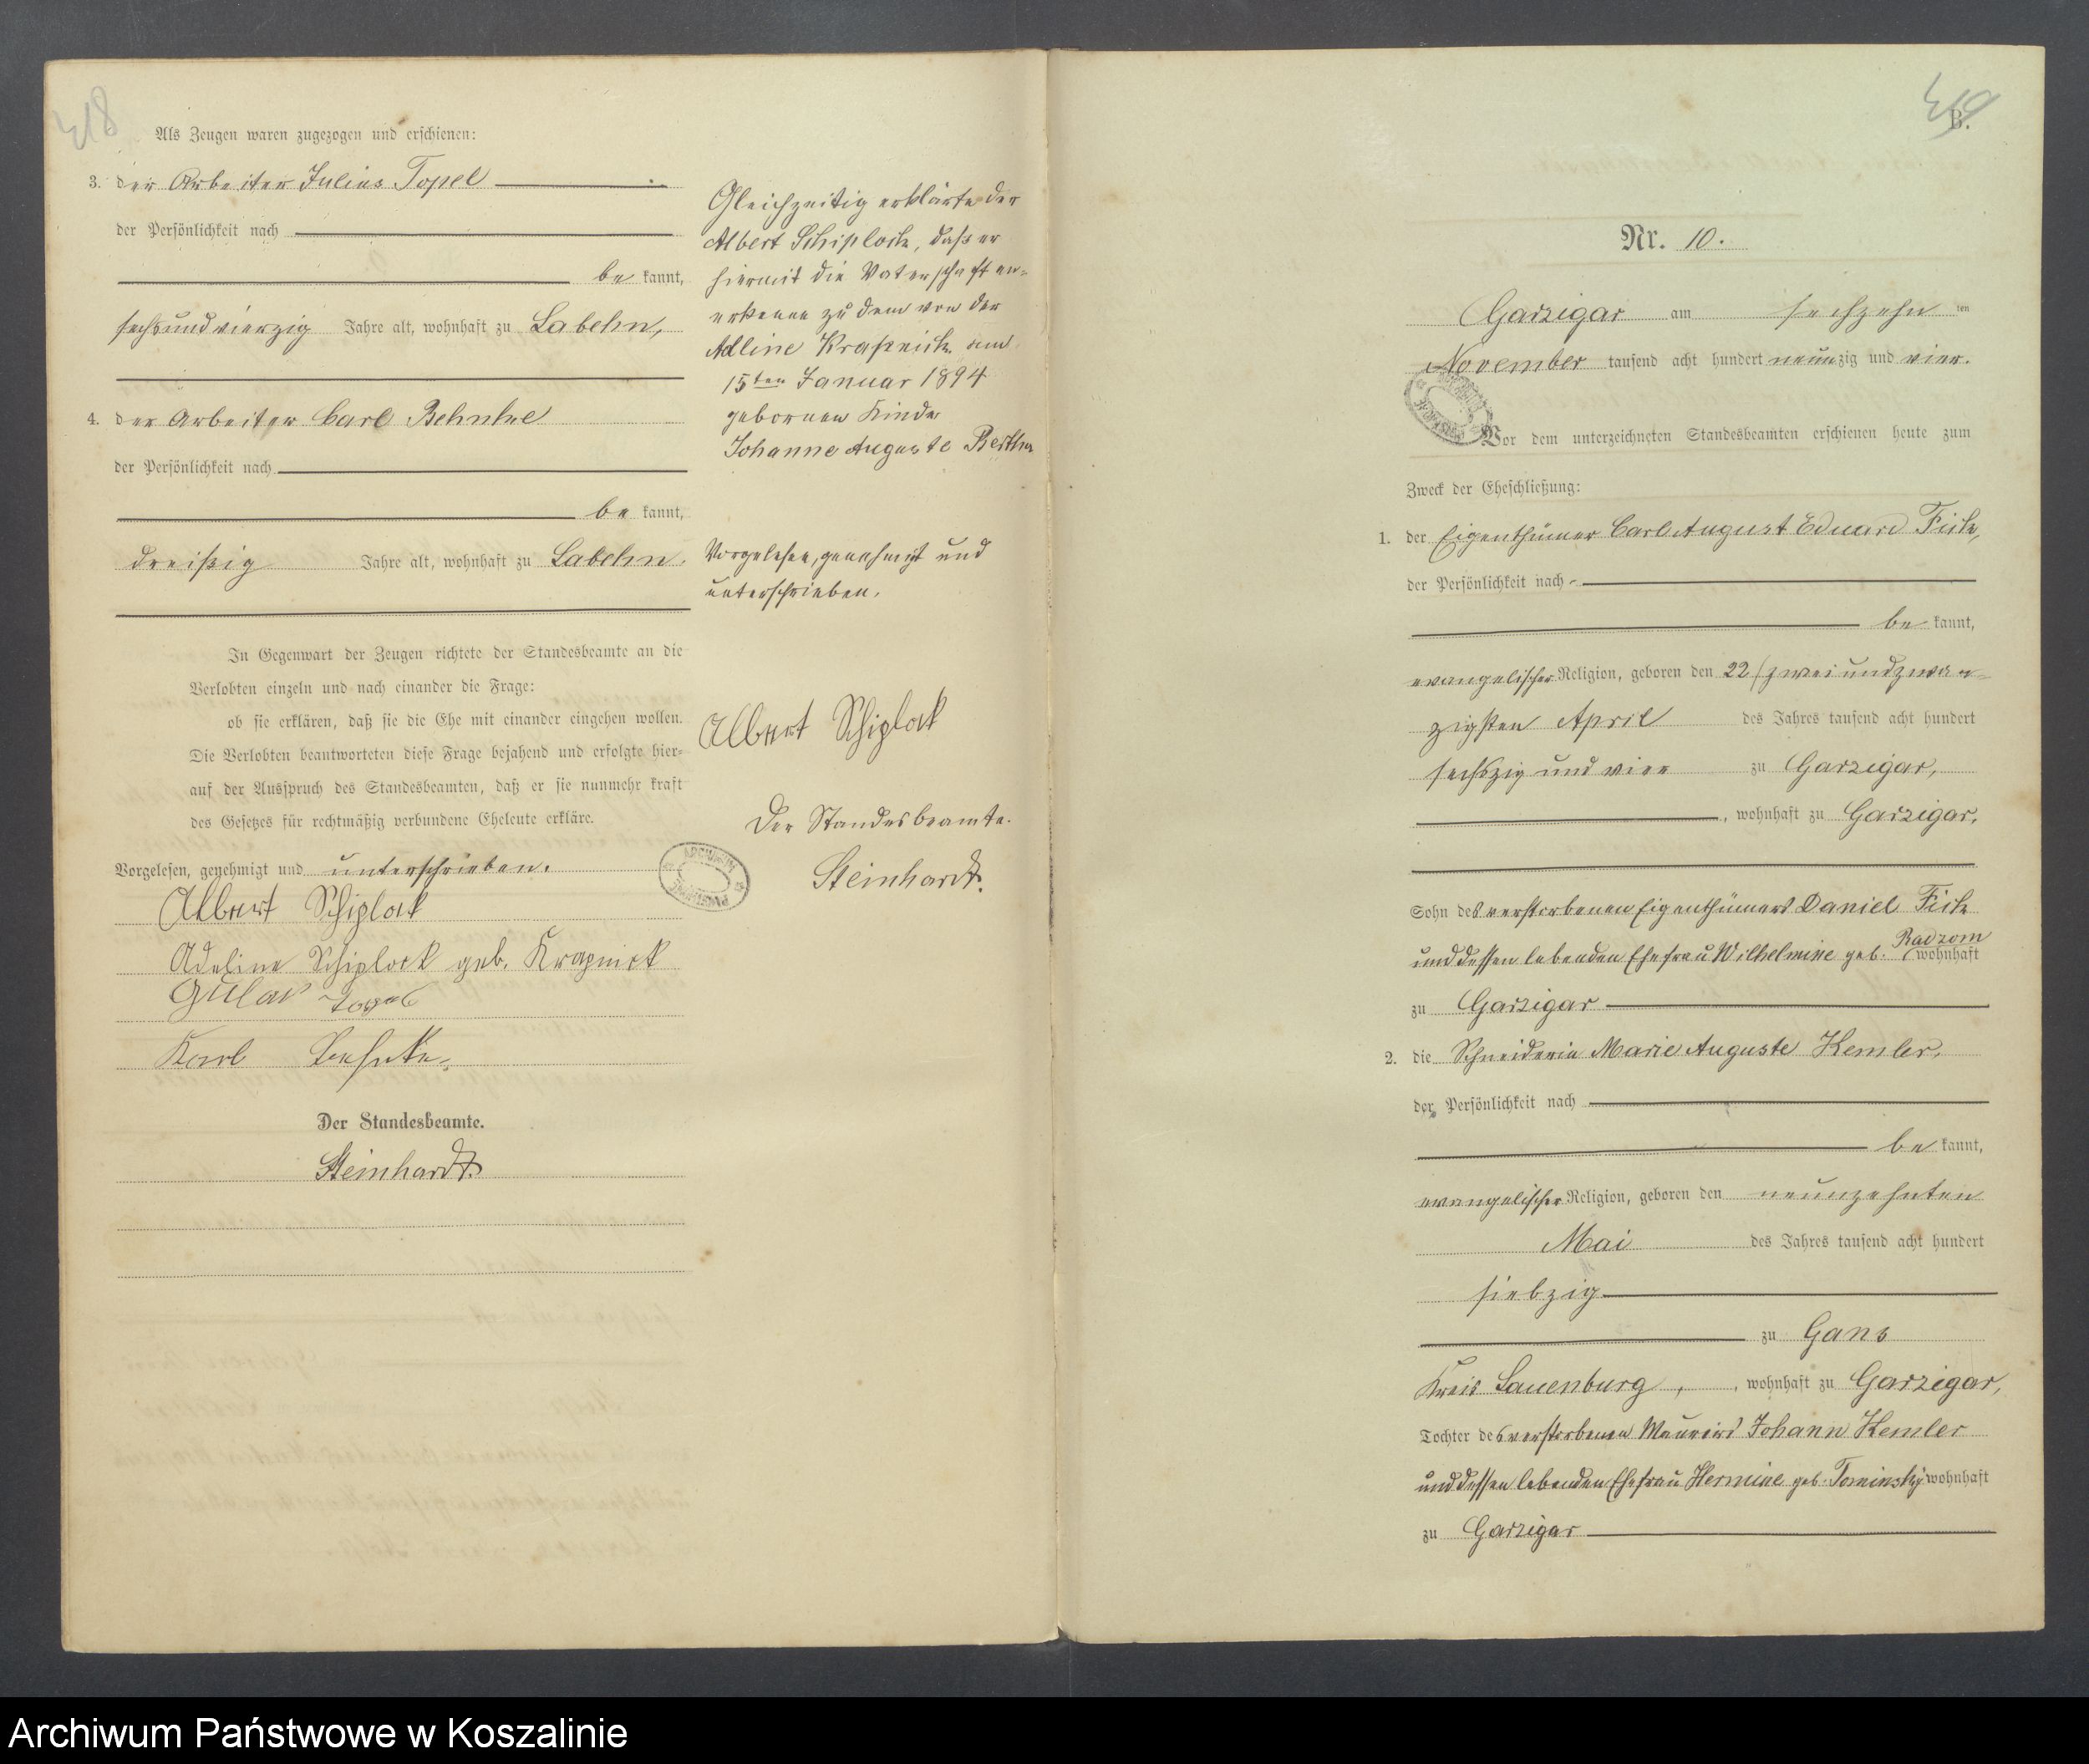 318
Als Zeugen waren zugezogen und erschienen:
3. der Arbeiter Julius Topel
der Persönlichkeit nach
be kannt,
sechsundvierzig Jahre alt, wohnhaft zu Labehn,
4. der Arbeiter Carl Behnke
der Persönlichkeit nach
be kannt,
dreißig Jahre alt, wohnhaft zu Labehn.
In Gegenwart der Zeugen richtete der Standesbeamte an die
Verlobten einzeln und nach einander die Frage:
ob sie erklären, daß sie die Ehe mit einander eingehen wollen.
Die Verlobten beantworteten diese Frage bejahend und erfolgte hier-
auf der Ausspruch des Standesbeamten, daß er sie nunmehr kraft
des Gesetzes für rechtmäßig verbundene Eheleute erkläre.
Vorgelesen, genehmigt und unterschrieben.
Albert Schiplock
Adeline Schiplock geb. Krapnick
Topel
Karl Behnke
Der Standesbeamte.
Steinhardt.
Gleichzeitig erklärte der
Albert Schiplock, daß er
hiermit die Vaterschaft an-
erkenne zu dem von der
Adline Krapnick am
15ten Januar 1894
geborenen Kinde
Johanne Auguste Bertha
Vorgelesen, genehmigt und
unterschrieben.
Albert Schiplock
Der Standesbeamte.
Steinhardt.
ARCHIWUM PAŃSTWOWE
319
B.
Nr. 10.
Garzigar am sechzehn ten
November tausend acht hundert neunzig und vier.
Vor dem unterzeichneten Standesbeamten erschienen heute zum
Zweck der Eheschließung:
1. der Eigenthümer Carl August Eduard Fick,
der Persönlichkeit nach
be kannt,
evangelischer Religion, geboren den 22 (zweiundzwan-
zigsten April des Jahres tausend acht hundert
sechszig und vier zu Garzigar,
, wohnhaft zu Garzigar,
Sohn des verstorbenen Eigenthümers Daniel Fick
und dessen lebenden Ehefrau Wilhelmine geb. Radzom wohnhaft
zu Garzigar
2. die Schneiderin Marie Auguste Kemler,
der Persönlichkeit nach
be kannt,
evangelischer Religion, geboren den neunzehnten
Mai des Jahres tausend acht hundert
siebzig
zu Gans
Kreis Lauenburg, , wohnhaft zu Garzigar,
Tochter des verstorbenen Maurers Johann Kemler
und dessen lebenden Ehefrau Hermine geb. Tominsky wohnhaft
zu Garzigar
Archiwum Państwowe w Koszalinie